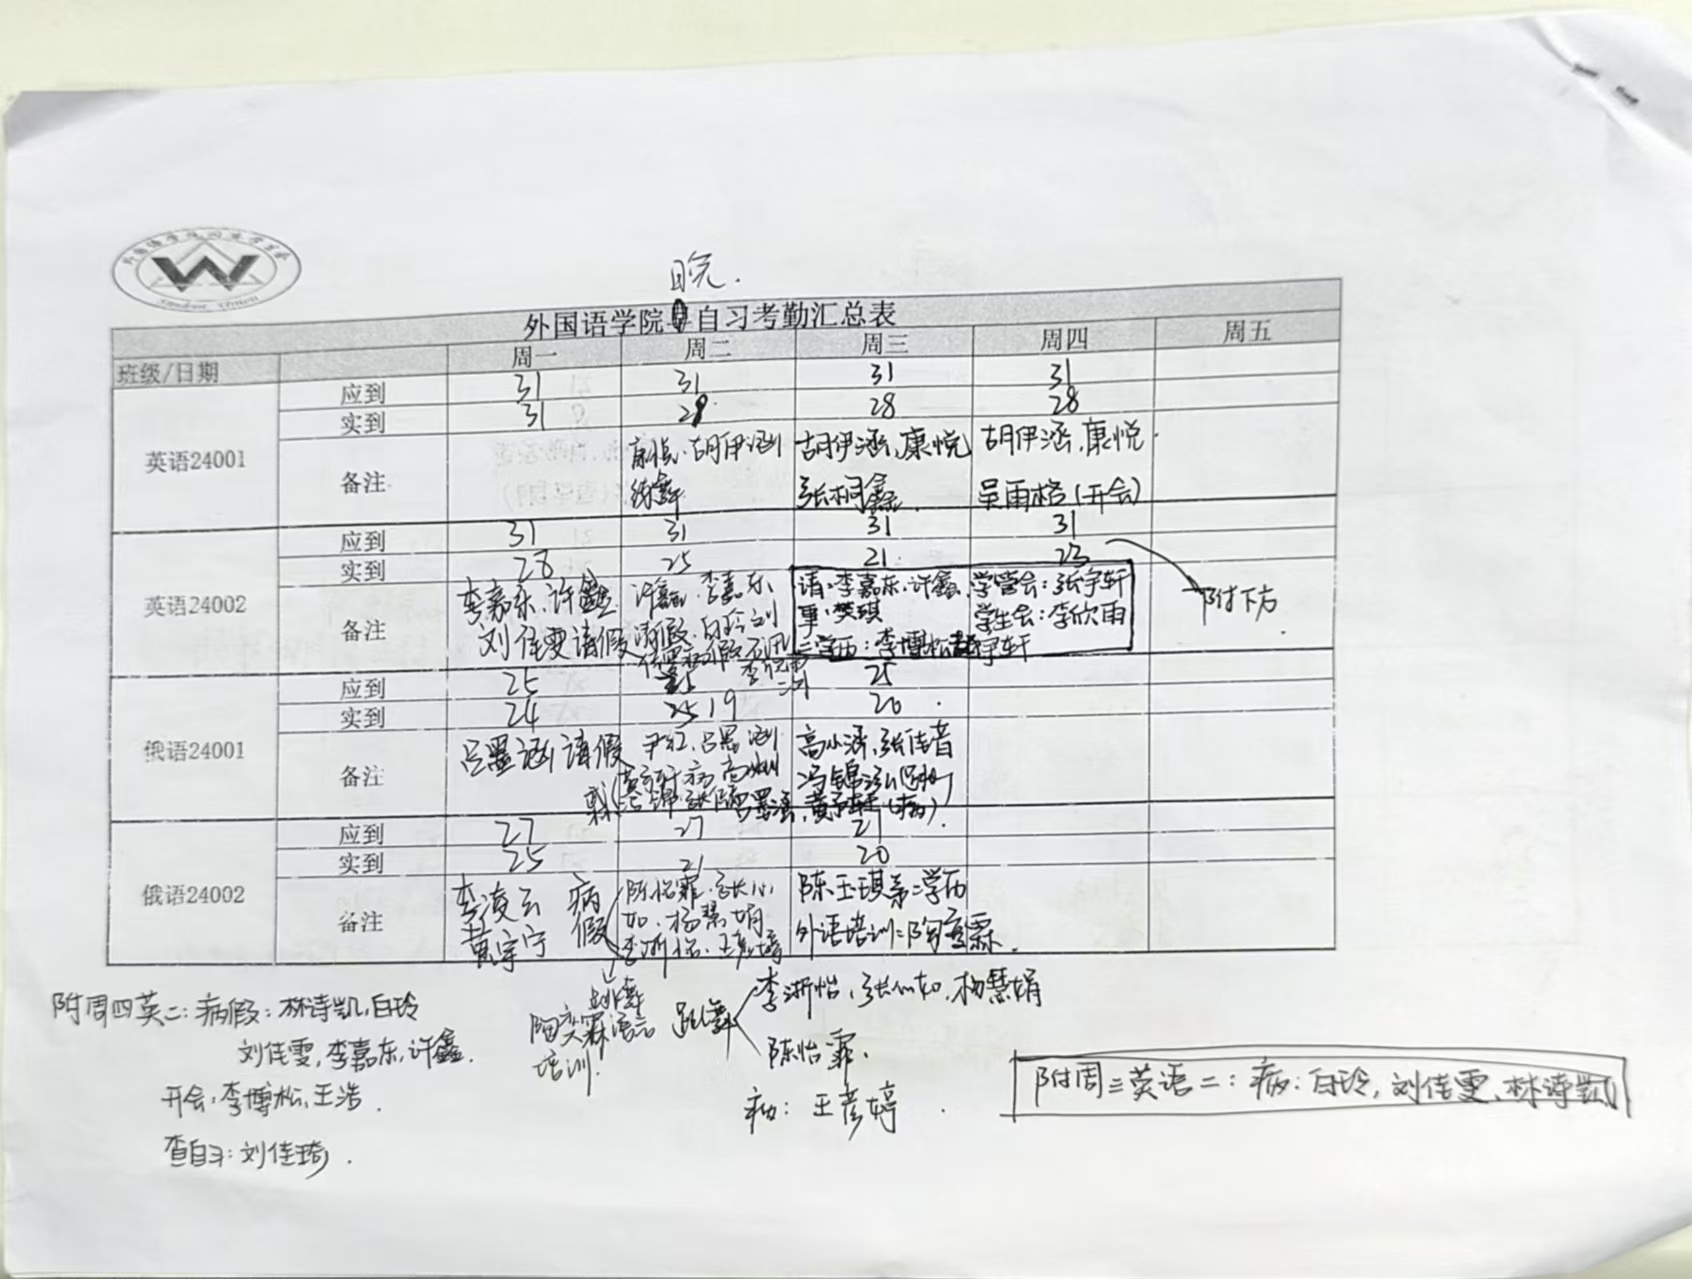 晚.
外国语学院自习考勤汇总表
班级/日期 周一 周二 周三 周四 周五
英语24001
应到 31 31 31 31
实到 31 28 28 28
备注 胡伊涵 胡伊涵,康悦 胡伊涵,康悦.
张桐鑫. 吴雨格(开会)
英语24002
应到 31 31 31 31
实到 28 25 21 23
备注 李嘉东.许鑫. 许鑫.李嘉东 请:李嘉东.许鑫. 学管会:张宇轩
刘佳雯请假 请假.白玲.刘 事:樊琪 学生会:李欣雨
二学历:李博松
附下方.
俄语24001
应到 25 25 25
实到 24 19 20
备注 吕墨涵请假 尹红.吕墨涵 高小涵.张佳音
冯锦泓
(病).
俄语24002
应到 27 27 27
实到 25 21 20
备注 李凌云 病假 陈怡霏.张心如.杨慧娟 陈玉琪第二学历
黄宇宁 李浙怡.王彦婷 外语培训:陶奕霖.
跳舞
陶奕霖语言
培训.
跳舞 李浙怡,张心如,杨慧娟
陈怡霏.
病: 王彦婷.
附周四英二:病假:林诗凯,白玲
刘佳雯,李嘉东,许鑫.
开会:李博松,王浩.
查自习:刘佳琦.
附周三英语二:病:白玲,刘佳雯,林诗凯